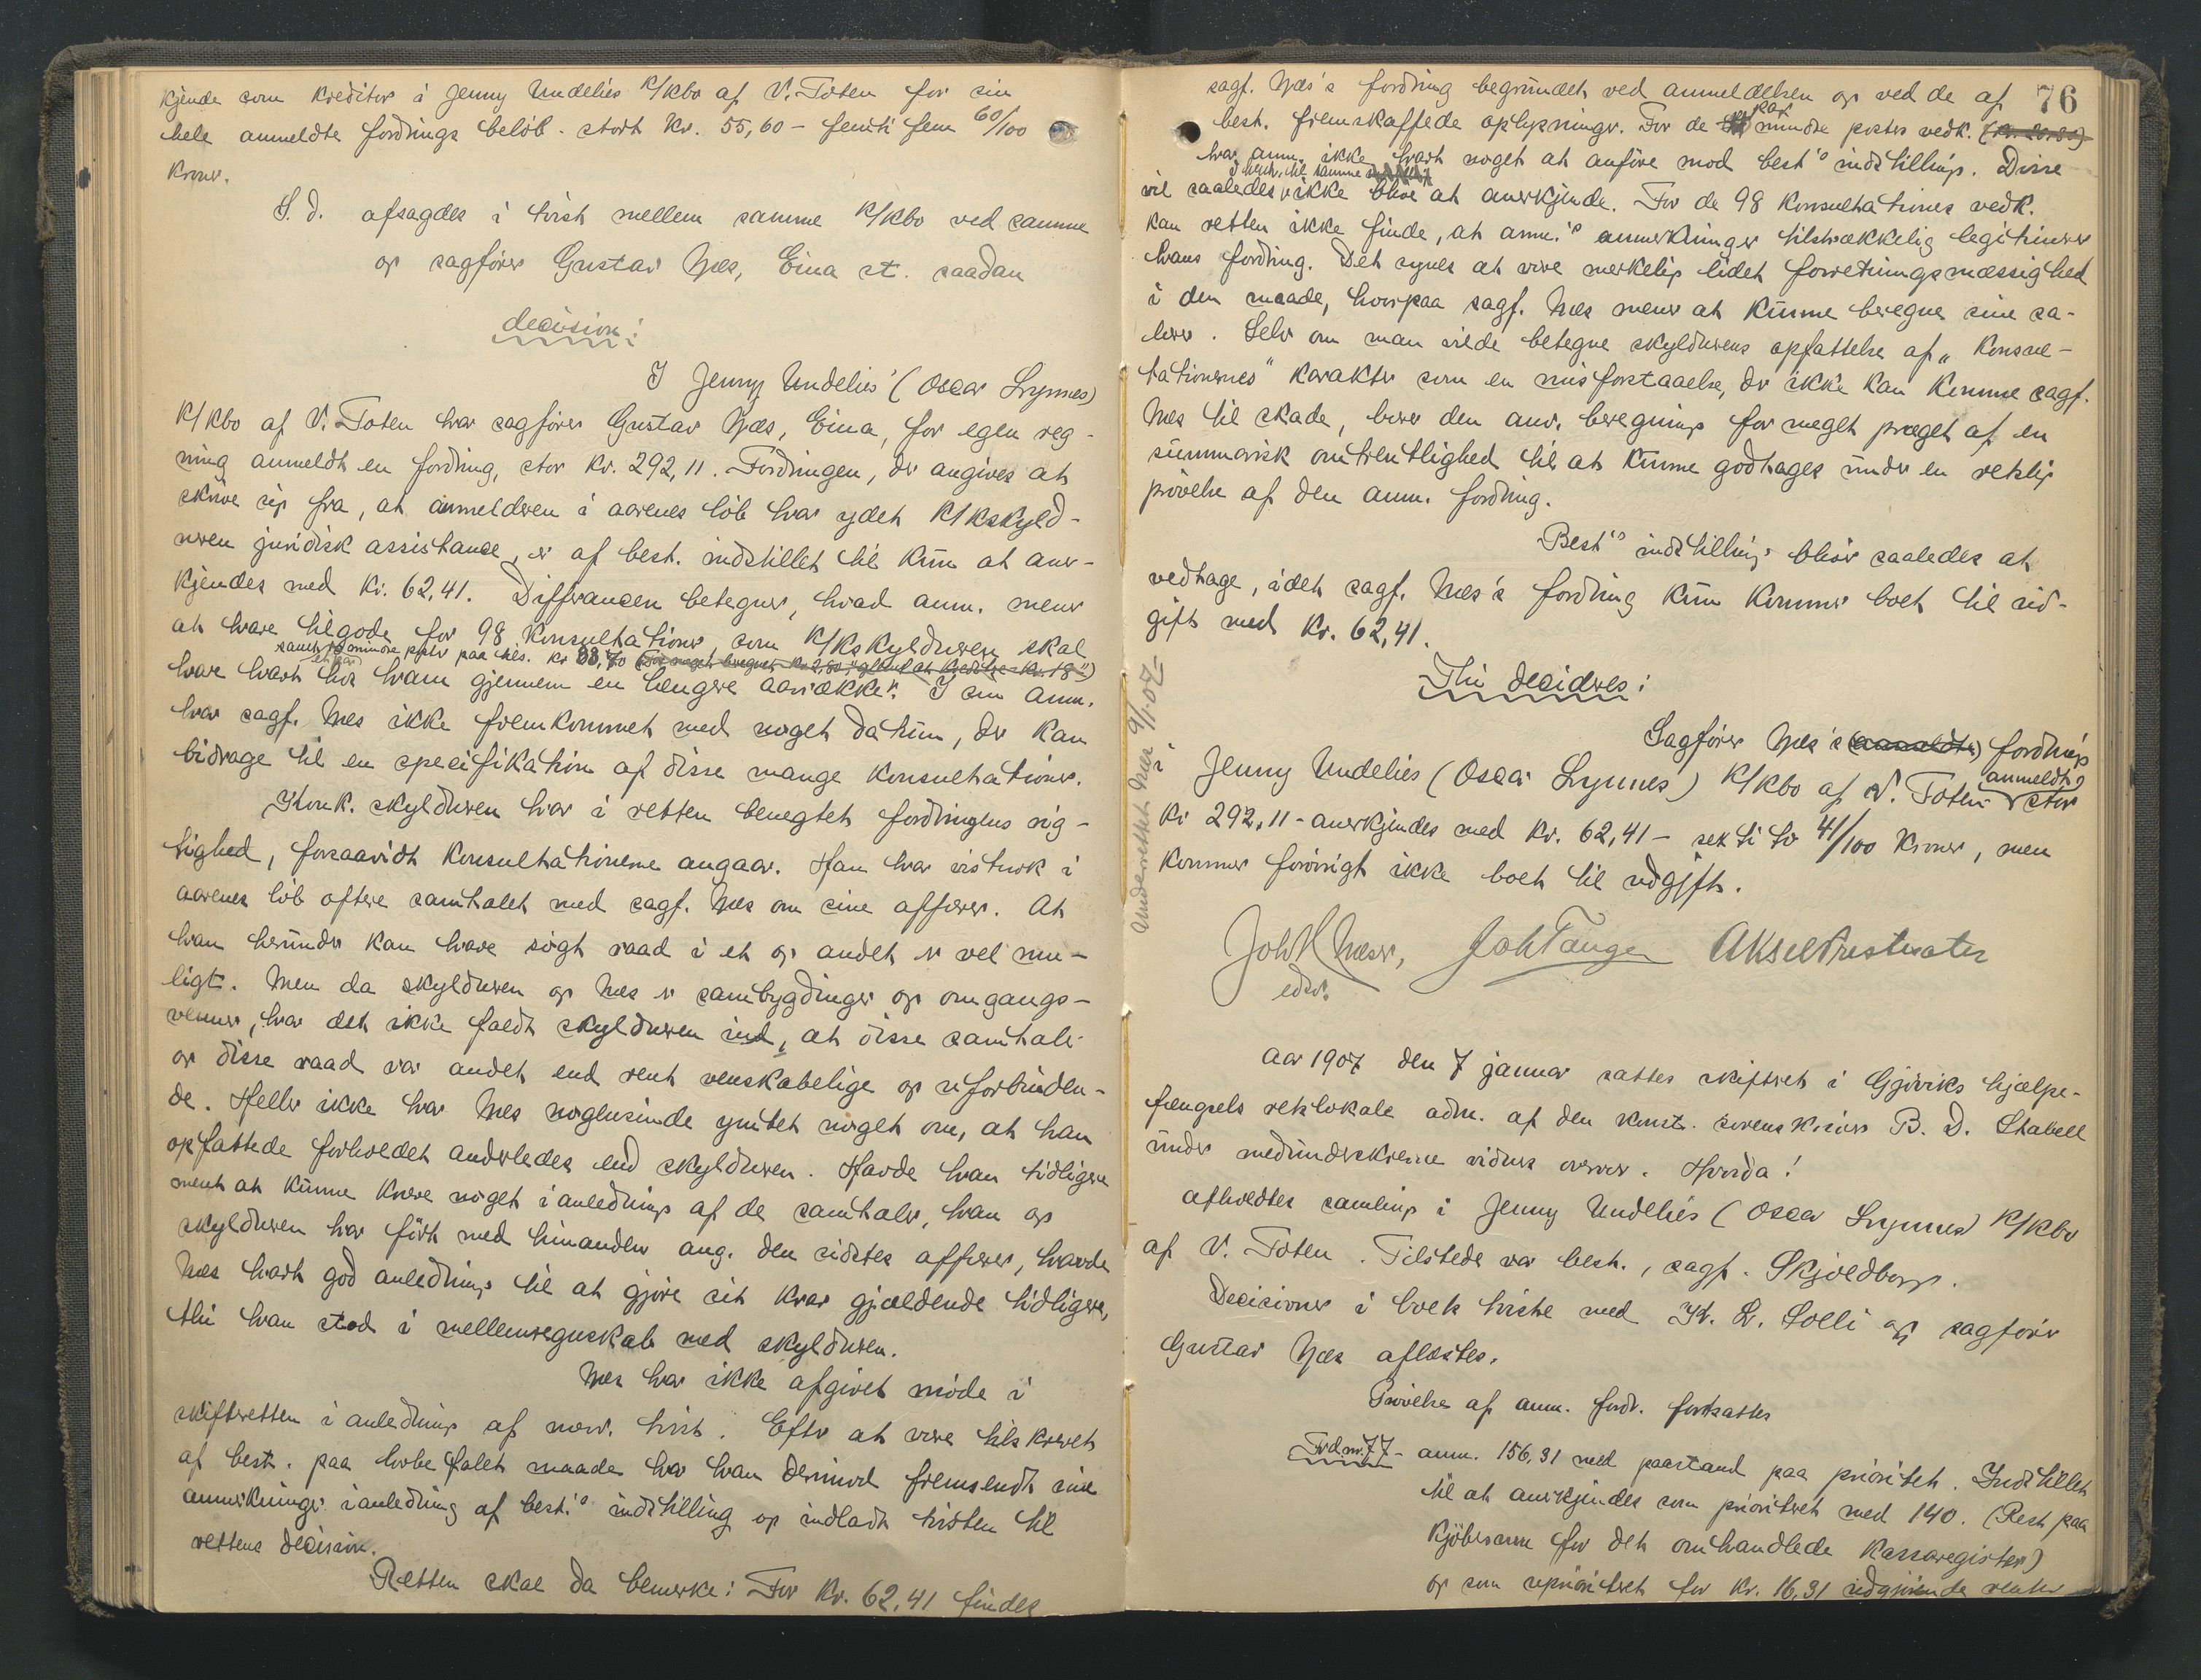 kjende som kreditor i Jenny Undelies k/kbo af V. Toten for sin
hele anmeldte fordrings beløb - stort kr. 55,60 - femti fem 60/100
kroner.
S. d. afsagdes i tvist mellem samme k/kbo ved samme
og sagfører Gustav Næs, Eina st. saadan
decision:
I Jenny Undelies' (Oscar Lynnes)
k/kbo af V. Toten har sagfører Gustav Næs, Eina, for egen reg-
ning anmeldt en fordring, stor kr. 292,11. Fordringen, der angives at
skrive sig fra, at anmelderen i aarenes løb har ydet k/kskyld-
neren juridisk assistance, er af best. indstillet til kun at aner-
kjendes med kr. 62,41. Differancen betegner, hvad anm. mener
at have tilgode for 98 konsultationer som k/kskyldneren skal
samt et par mindre poster paa tils. kr 33,70
have havt hos ham gjennem en længere aarrække". I sin anm.
har sagf. Næs ikke fremkommet med noget datum, der kan
bidrage til en specifikation af disse mange konsultationer.
Konk. skyldneren har i retten benegtet fordringens rig-
tighed, forsaavidt konsultationerne angaar. Han har vistnok i
aarenes løb oftere samtalet med sagf. Næs om sine affærer. At
han herunder kan have søgt raad i et og andet er vel mu-
ligt. Men da skyldneren og Næs er sambygdinger og omgangs-
venner, har det ikke faldt skyldneren ind, at disse samtaler
og disse raad var andet end rent venskabelige og uforbinden-
de. Heller ikke har Næs nogensinde ymtet noget om, at han
opfattede forholdet anderledes end skyldneren. Havde han tidligere
ment at kunne kræve noget i anledning af de samtaler, han og
skyldneren har ført med hinanden ang. den sidstes affærer, havde
Næs havt god anledning til at gjøre sit krav gjældende tidligere,
thi han stod i mellemregnskab med skyldneren.
Næs har ikke afgivet møde i
skifteretten i anledning af nærv. tvist. Efter at være tilskrevet
af best. paa lovbefalet maade har han derimod fremsendt sine
anmerkninger i anledning af best.'s indstilling og indladt tvisten til
rettens decision.
Retten skal da bemerke: For kr. 62,41 findes
76
sagf. Næs's fordring begrundet ved anmeldelsen og ved de af
best. fremskaffede oplysninger. For de par mindre poster vedk.
har anm. ikke havt noget at anføre mod best's indstilling. Disse
vil saaledes i henh. til samme ikke blive at anerkjende. For de 98 konsultationer vedk.
kan retten ikke finde, at anm.'s anmerkninger tilstrækkelig legitimerer
hans fordring. Det synes at være merkelig lidet forretningsmæssighed
i den maade, hvorpaa sagf. Næs mener at kunne beregne sine sa-
lærer. Selv om man vilde betegne skyldnerens opfattelse af "konsul-
tationernes" karakter som en misforstaaelse, der ikke kan komme sagf.
Næs til skade, bærer den anv. beregning for meget præget af en
summarisk omtrentlighed til at kunne godtages under en retslig
prøvelse af den anm. fordring.
Best's indstilling blir saaledes at
vedtage, idet sagf. Næs's fordring kun kommer boet til ud-
gift med kr. 62,41.
Thi decideres:
Sagfører Næs's (anmeldte) fordring
i Jenny Undelies (Oscar Lynnes) k/kbo af V. Toten - anmeldt stor
kr 292,11 - anerkjendes med kr. 62,41 - sexti to 41/100 kroner, men
kommer forøvrigt ikke boet til udgift.
Underrettet Næs 9/1-07-
Joh Tangen
edsv.
Aar 1907 den 7 januar sattes skifteret i Gjøviks hjælpe-
fængsels retslokale adm. af den konst. sorenskriver B. D. Stabell
under medunderskrevne vidners overvær. Hvorda!
afholdtes samling i Jenny Undelies (Oscar Lynnes) k/kbo
af V. Toten. Tilstede var best., sagf. Skjoldborg.
Decisioner i boets tviste med K. L. Solli og sagfører
Gustav Næs aflæstes.
Prøvelse af anm. fordr. fortsattes
Frd nr. 77 - anm. 156,31 med paastand paa prioritet. Indstillet
til at anerkjendes som prioriteret med 140. (Rest paa
kjøbesum for det omhandlede kassaregister)
og som uprioriteret for kr. 16,31 udgjørende renter